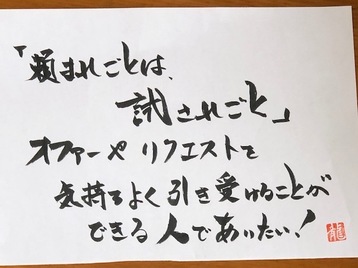 「頼まれごとは、
試されごと」
オファーや リクエストを
気持ちよく引き受けることが
できる人でありたい!
龍